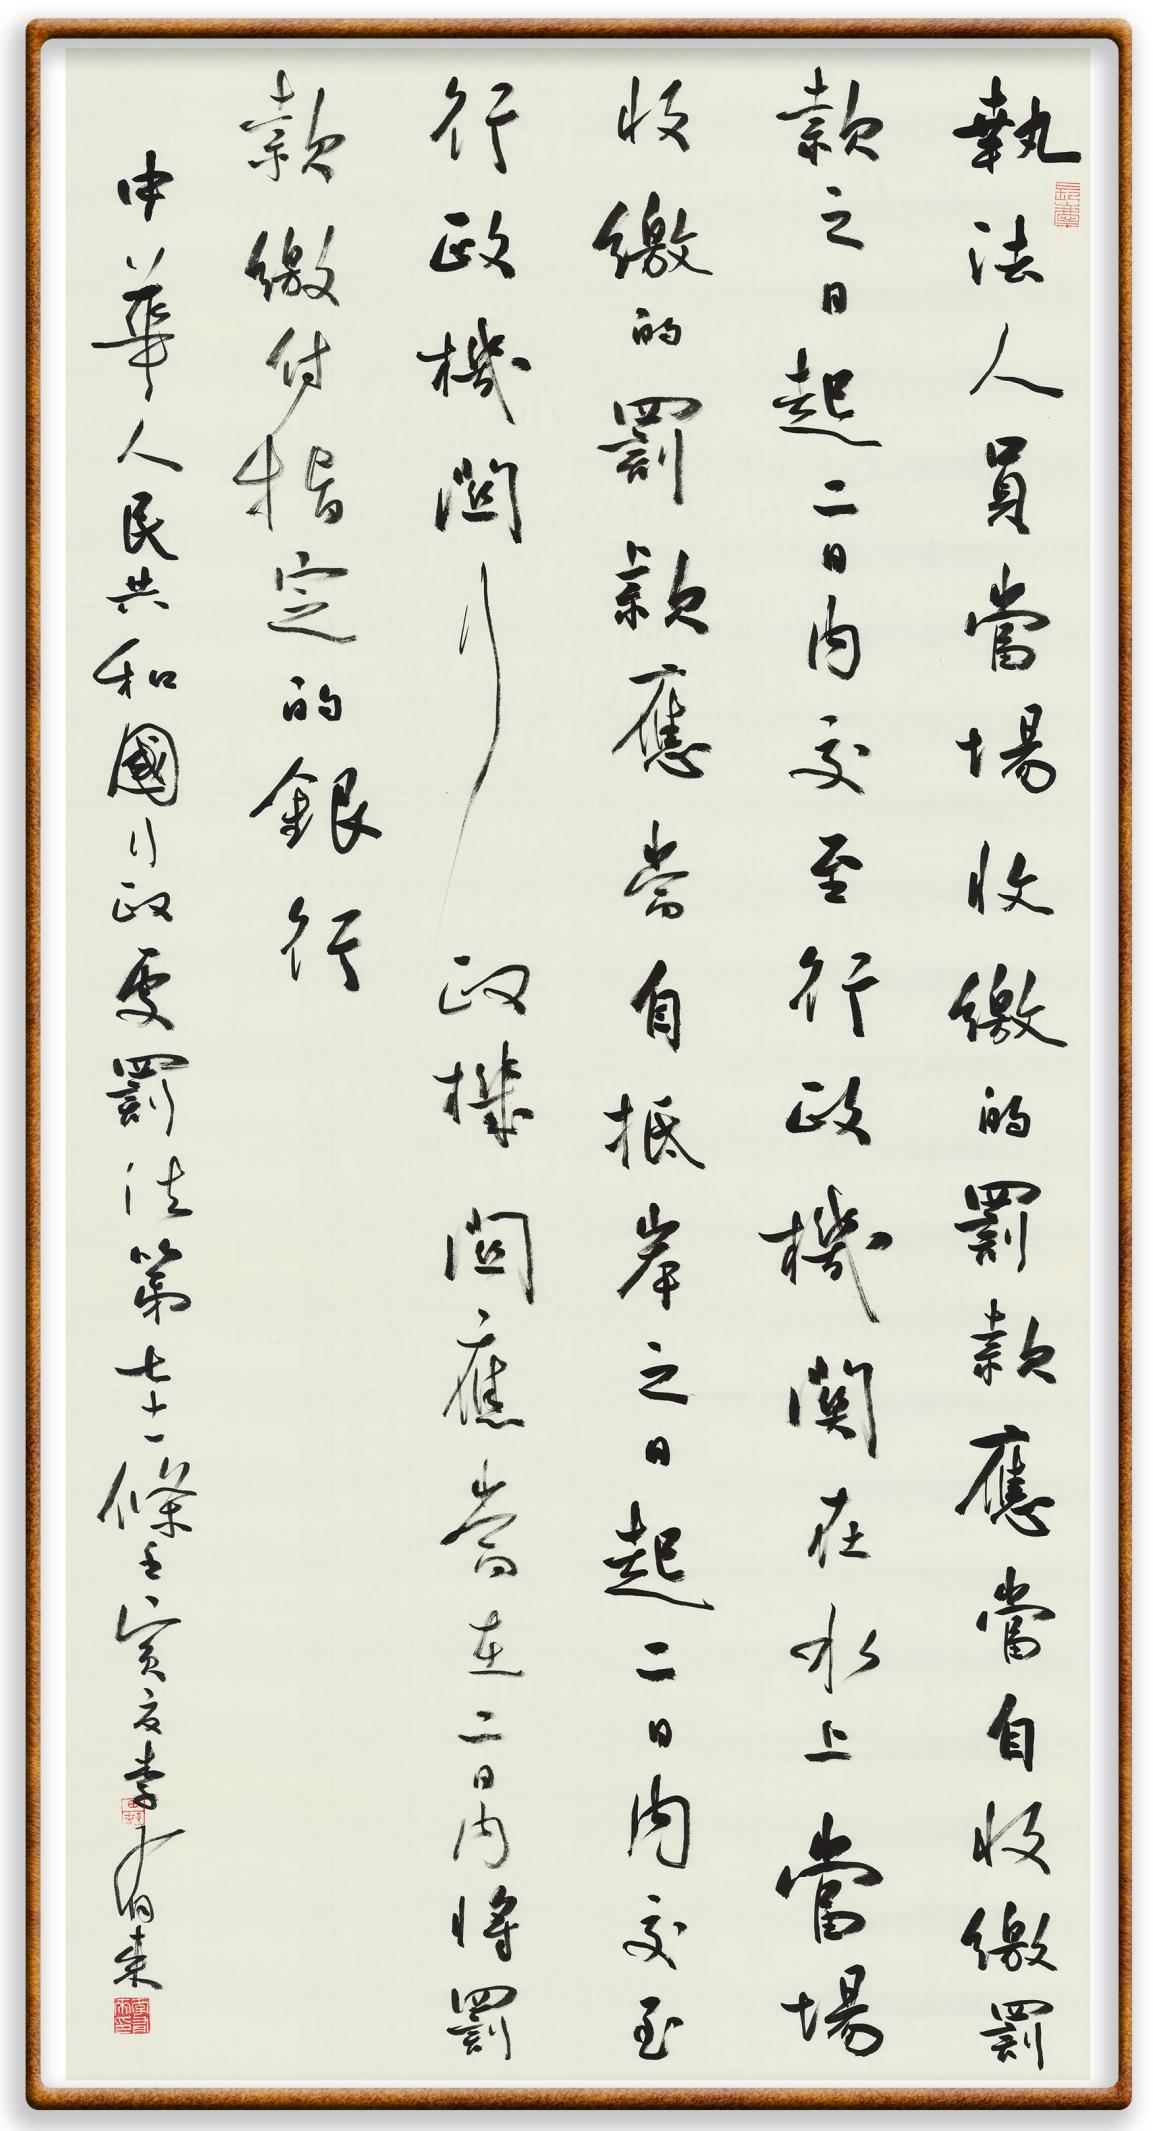 執法人員當場收繳的罰款應當自收繳罰
款之日起二日内交至行政機関在水上當場
收繳的罰款應當自抵岸之日起二日内交至
行政機関行政機関應當在二日内將罰
款繳付指定的銀行
中華人民共和國行政處罰法第七十一條壬寅夏李有来